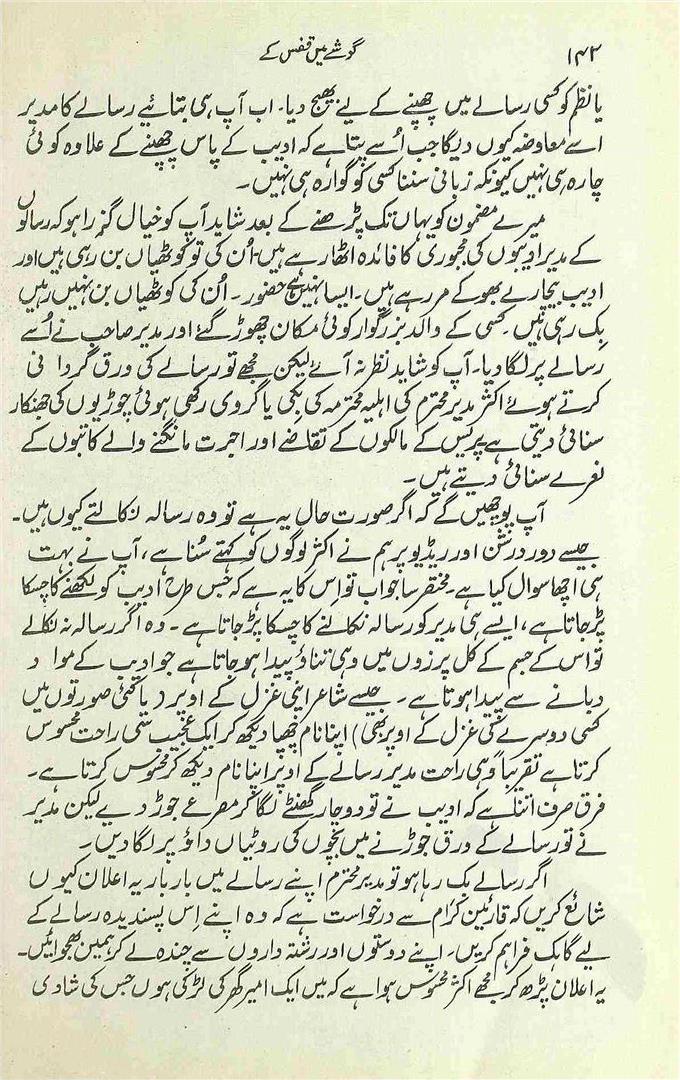 ۱۴۲ گوشے میں قفس کے
یا نظم کو کسی رسالے میں چھپنے کے لیے بھیج دیا۔ اب آپ ہی بتائیے رسالے کا مدیر
اسے معاوضہ کیوں دیگا جب اُسے پتا ہے کہ ادیب کے پاس چھپنے کے علاوہ کوئی
چارہ ہی نہیں کیونکہ زبانی سننا کسی کو گوارہ ہی نہیں۔
میرے مضمون کو یہاں تک پڑھنے کے بعد شاید آپ کو خیال گزرا ہو کہ رسالوں
کے مدیر ادیبوں کی مجبوری کا فائدہ اٹھا رہے ہیں۔ اُن کی تو کوٹھیاں بن رہی ہیں اور
ادیب بیچارے بھوکے مر رہے ہیں۔ ایسا نہیں ہے حضور۔ اُن کی کوٹھیاں بن نہیں رہیں
بِک رہی ہیں۔ کسی کے والد بزرگوار کوئی مکان چھوڑ گئے اور مدیر صاحب نے اُسے
رسالے پر لگا دیا۔ آپ کو شاید نظر نہ آئے لیکن مجھے تو رسالے کی ورق گردانی
کرتے ہوئے اکثر مدیر محترم کی اہلیہ محترمہ کی بِکی یا گروی رکھی ہوئی چوڑیوں کی جھنکار
سنائی دیتی ہے۔ پریس کے مالکوں کے تقاضے اور اجرت مانگنے والے کاتبوں کے
نعرے سنائی دیتے ہیں۔
آپ پوچھیں گے کہ اگر صورت حال یہ ہے تو وہ رسالہ نکالتے کیوں ہیں۔
جیسے دوردرشن اور ریڈیو پر ہم نے اکثر لوگوں کو کہتے سُنا ہے، آپ نے بہت
ہی اچھا سوال کیا ہے۔ مختصر سا جواب تو اِس کا یہ ہے کہ جس طرح ادیب کو لکھنے کا چسکا
پڑ جاتا ہے، ایسے ہی مدیر کو رسالہ نکالنے کا چسکا پڑ جاتا ہے۔ وہ اگر رسالہ نہ نکالے
تو اس کے جسم کے کل پرزوں میں وہی تناؤ پیدا ہو جاتا ہے جو ادیب کے مواد
دبانے سے پیدا ہوتا ہے۔ جیسے شاعر اپنی غزل کے اوپر (یا کئی صورتوں میں
کسی دوسرے کی غزل کے اوپر بھی) اپنا نام چھپا دیکھ کر ایک عجیب سی راحت محسوس
کرتا ہے تقریباً وہی راحت مدیر رسالے کے اوپر اپنا نام دیکھ کر محسوس کرتا ہے۔
فرق صرف اتنا ہے کہ ادیب نے تو دو چار گھنٹے لگا کر مصرعے جوڑ دیے لیکن مدیر
نے تو رسالے کے ورق جوڑنے میں بچوں کی روٹیاں داؤ پر لگا دیں۔
اگر رسالے بک رہا ہو تو مدیر محترم اپنے رسالے میں بار بار یہ اعلان کیوں
شائع کریں کہ قارئین کرام سے درخواست ہے کہ وہ اپنے اِس پسندیدہ رسالے کے
لیے گاہک فراہم کریں، اپنے دوستوں اور رشتہ داروں سے چندہ لے کر ہمیں بھجوائیں۔
یہ اعلان پڑھ کر مجھے اکثر محسوس ہوا ہے کہ میں ایک امیر گھر کی لڑکی ہوں جس کی شادی